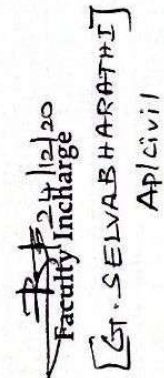 24/12/20
Faculty Incharge
[G. SELVABHARATHI]
AP/Civil